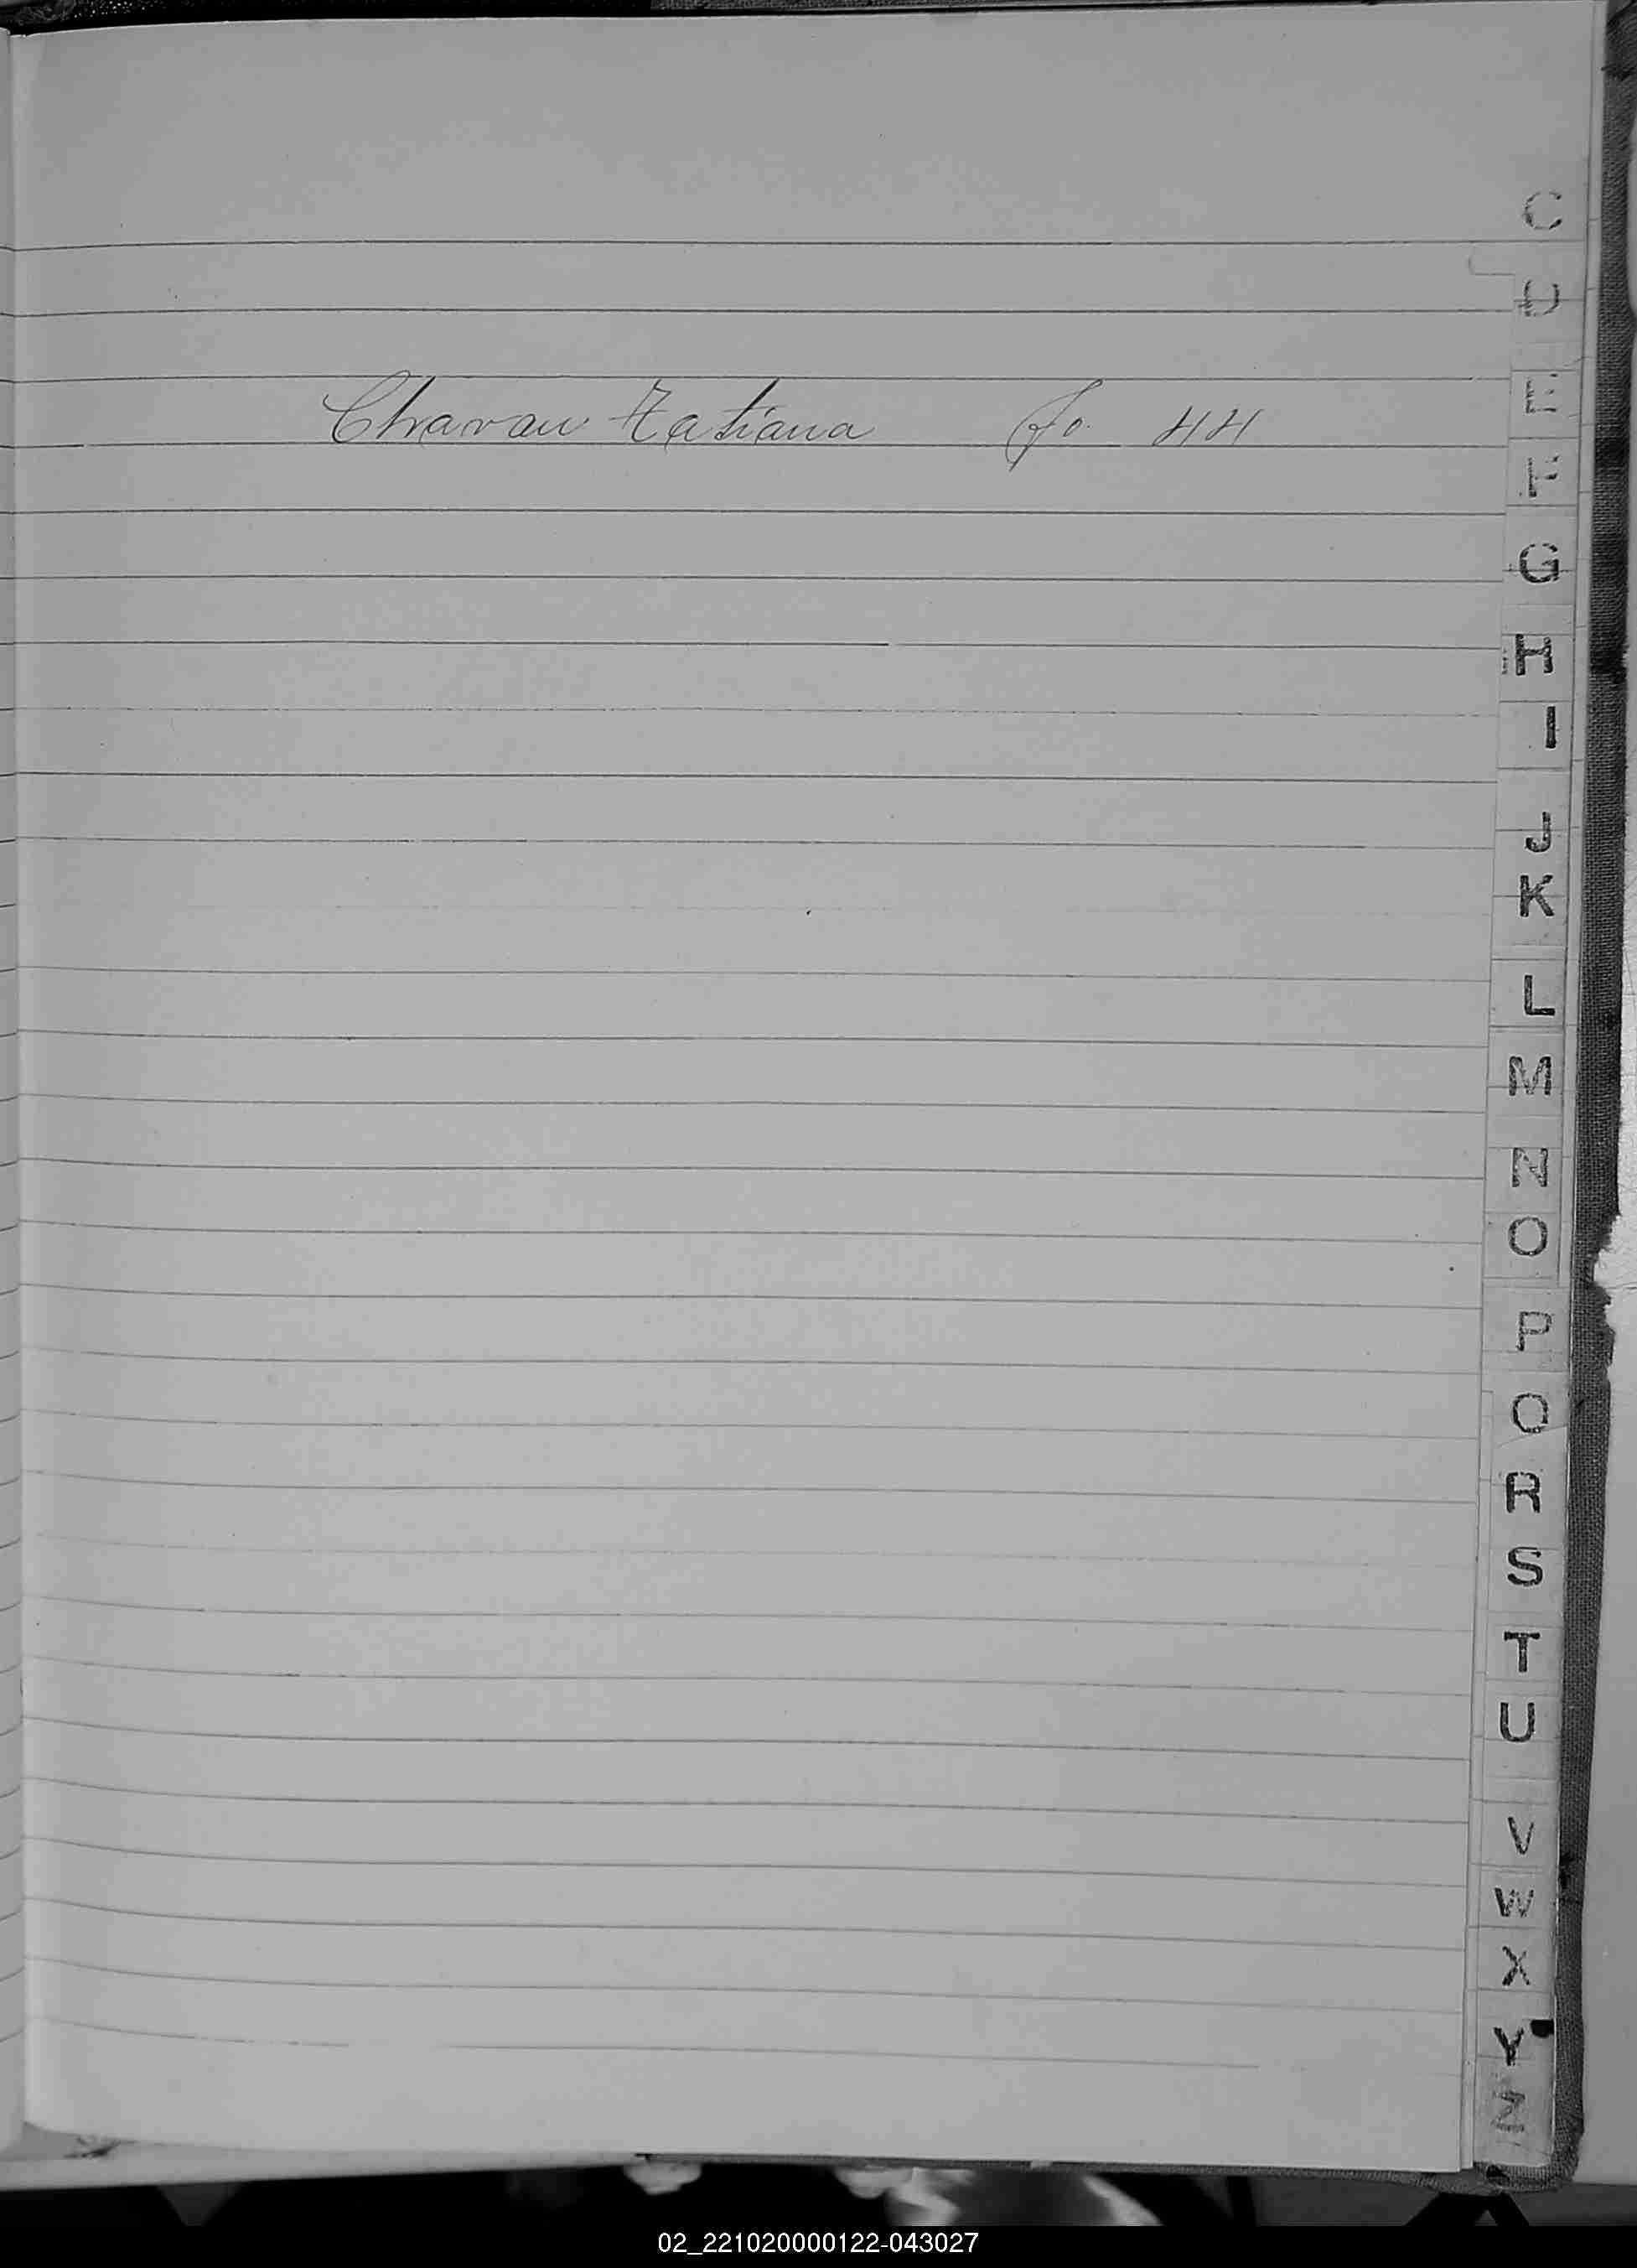 Charau Tatiana fo. 44
C
D
E
F
G
H
I
J
K
L
M
N
O
P
Q
R
S
T
U
V
W
X
Y
Z
02_221020000122-043027